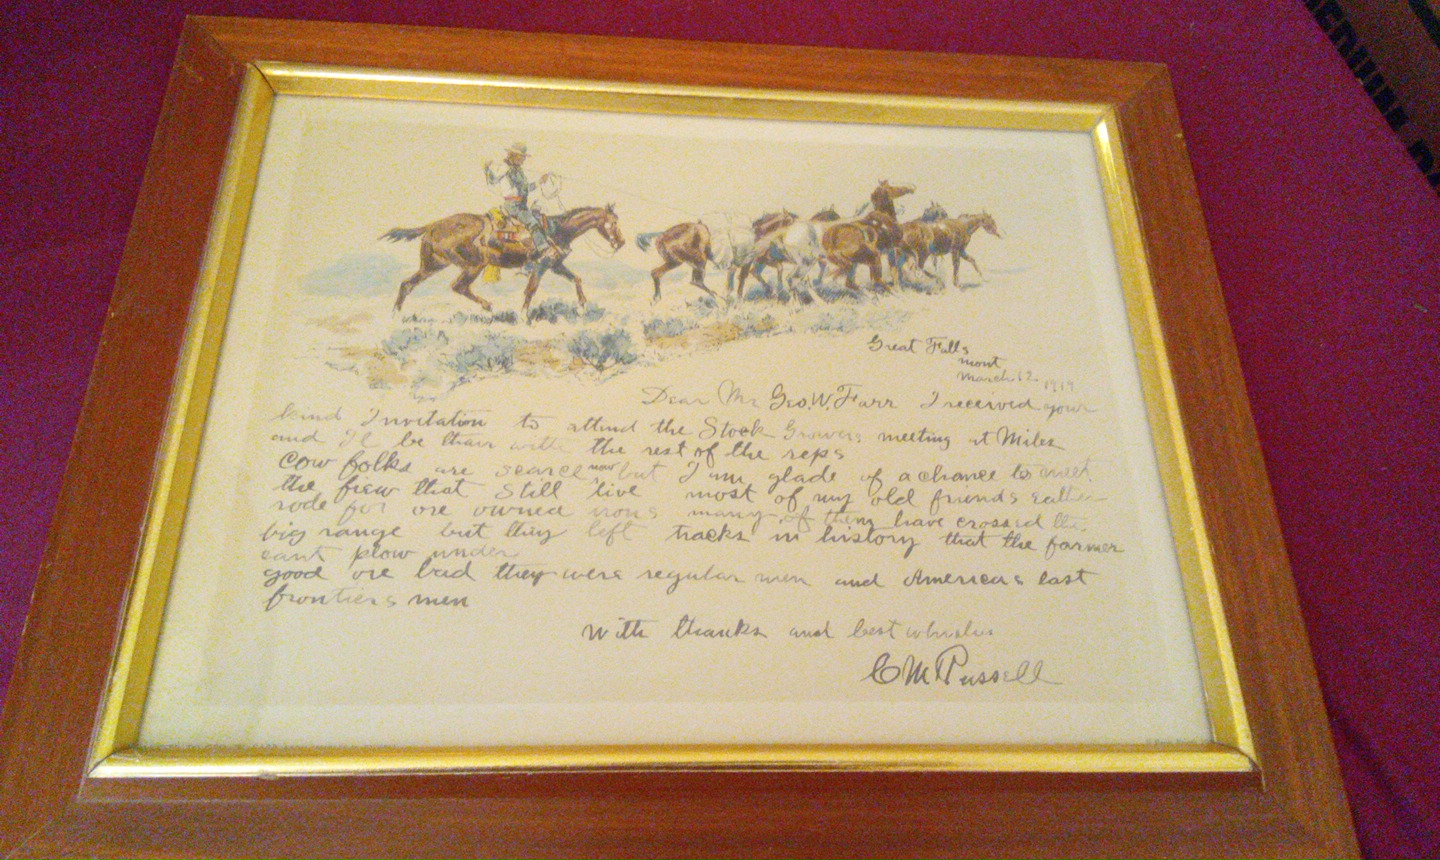 Great Falls
Mont
March 12 1919
Dear Mr Geo. W. Farr I received your
kind Invitation to attend the Stock Growers meeting at Miles
and Il be thair with the rest of the reps
Cow folks are scarce now but I am glade of a chance to meet
the fiew that still live most of my old friends eather
rode for ore owned irons many of them have crossed the
big range but they left tracks in history that the farmer
cant plow under
good ore bad they were regular men and Americas last
frontiers men
With thanks and best whishes
CM Russell